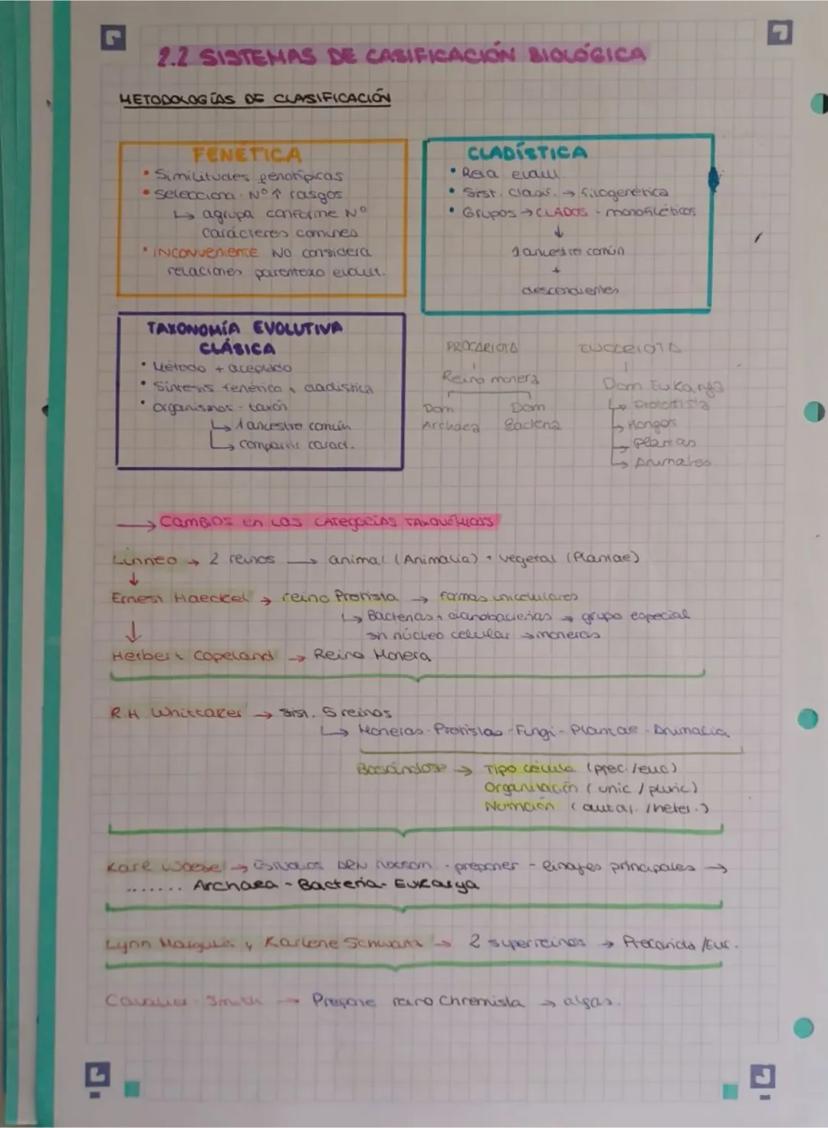 2.2 SISTEMAS DE CASIFICACIÓN BIOLÓGICA
METODOLOGÍAS DE CLASIFICACIÓN
FENÉTICA
• Similitudes fenotípicas
• Selecciona Nº ↑ rasgos
↳ agrupa conforme Nº
carácteres comunes
• INCONVENIENTE NO considera
relaciones parentezco evolut.
CLADÍSTICA
• evolu.
• Sist. clasif. → filogenética
• Grupos → CLADOS - monofiléticos
↓
1 ancestro común
+
descendientes
TAXONOMÍA EVOLUTIVA
CLÁSICA
• Método + aceptado
• Síntesis fenética y cladística
• organismos - taxón
↳ 1 ancestro común
↳ compartir caract.
PROCARIOTA
Reino monera
Dom Dom
Archaea Bacteria
EUCARIOTA
Dom Eukarya
↳ Protoctista
↳ Hongos
↳ Plantas
↳ Animales
→ CAMBIOS EN LAS CATEGORÍAS TAXONÓMICAS
Linneo → 2 reinos → animal (Animalia) + vegetal (Plantae)
↓
Ernest Haeckel → reino Protista → formas unicelulares
↳ Bacterias y cianobacterias → grupo especial
sin núcleo celular → moneras
↓
Herbert Copeland → Reino Monera
R.H Whittaker → sist. 5 reinos
↳ Moneras - Protistas - Fungi - Plantae - Animalia
Basándose → Tipo célula (proc./euc)
Organización (unic / pluric)
Nutrición (autót. / heter.)
Karl Woese → proponer - linajes principales →
....... Archaea - Bacteria - Eukarya
Lynn Margulis y Karlene Schwartz → 2 superreinos → Procariota /Euc.
Cavalier-Smith → Propone reino Chromista → algas.